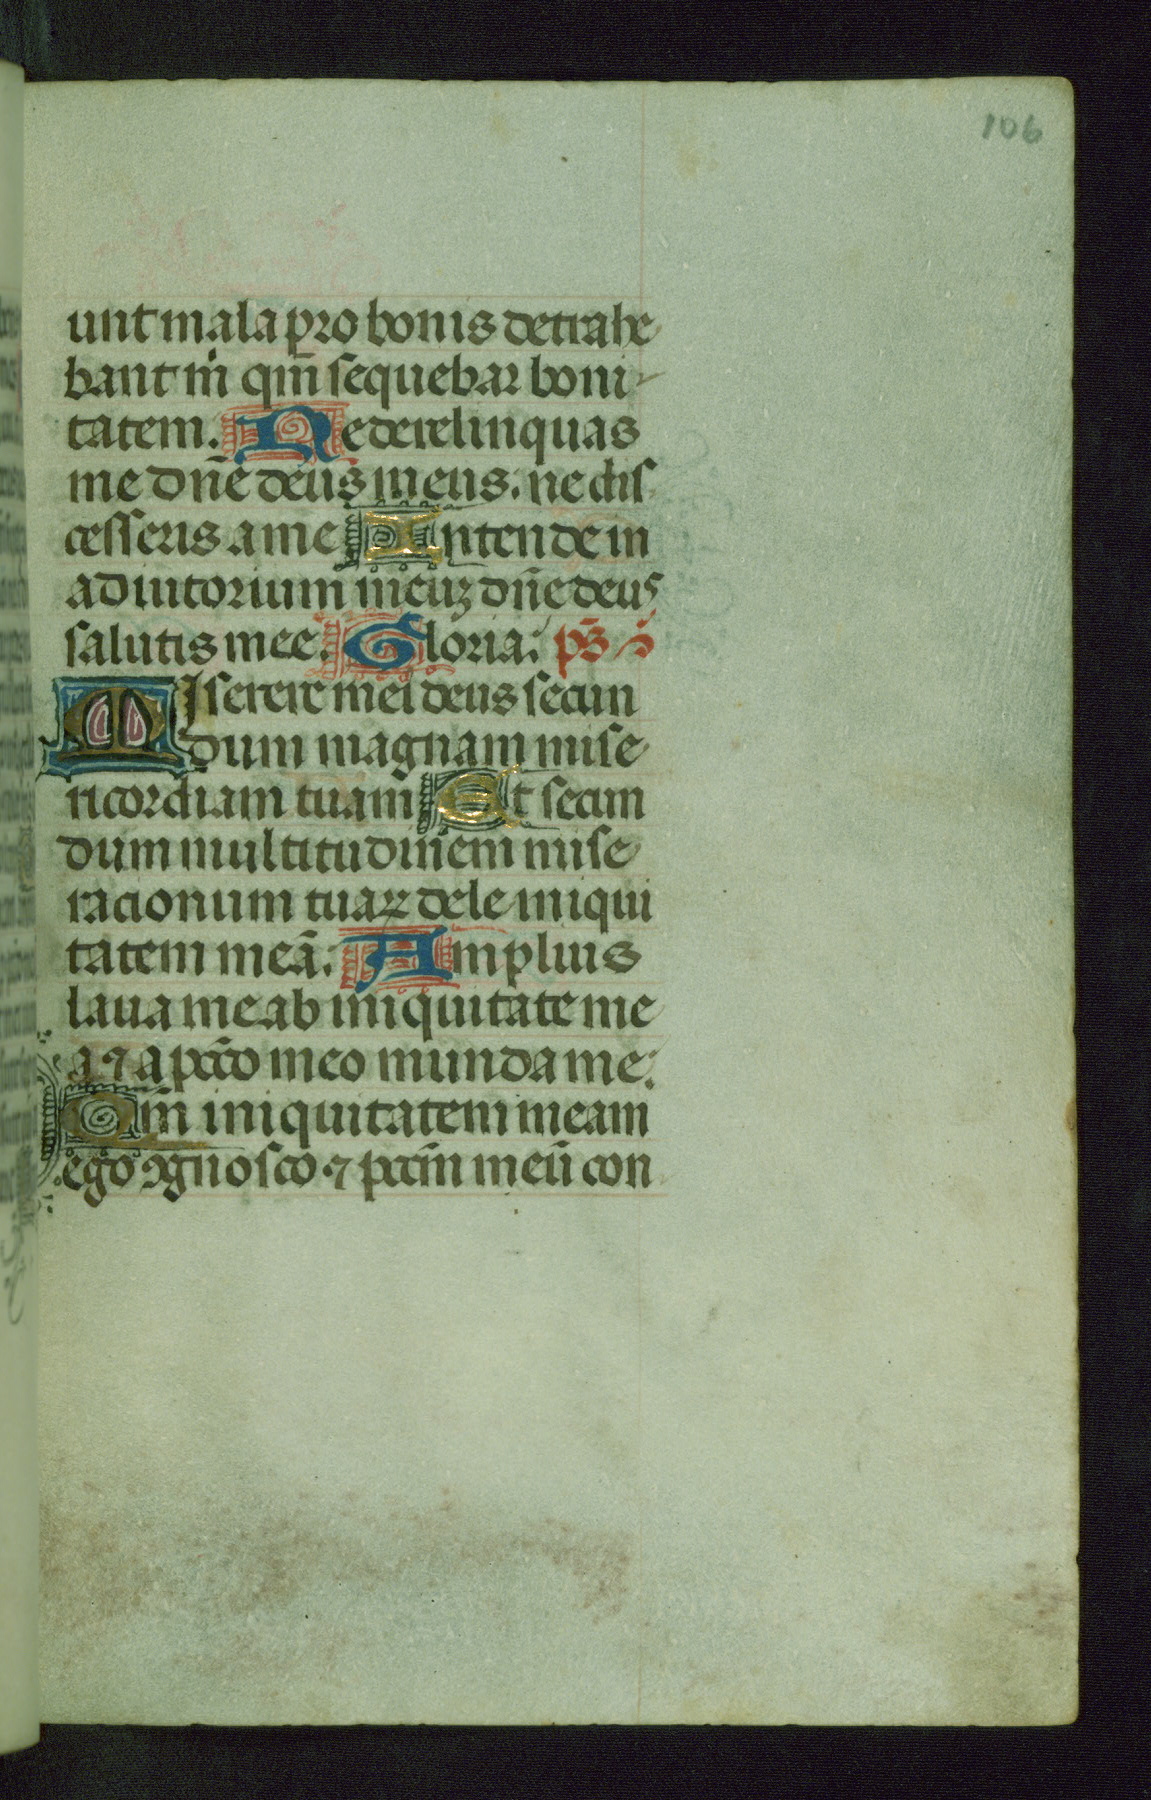 106
unt mala pro bonis detrahe
bant m̃ qm̃ sequebar boni
tatem. Ne derelinquas
me dñe deus meus. ne dis
cesseris a me Intende in
adiutorium meuꝫ dñe deus
salutis mee. Gloria. ps̃
Miserere mei deus secun
dum magnam mise
ricordiam tuam Et secun
dum multitudinem mise
racionum tuaꝝ dele iniqui
tatem meã. Amplius
laua me ab iniquitate me
a ⁊ a pcc̃o meo munda me.
Qm̃ iniquitatem meam
ego ꝯgnosco ⁊ pccm̃ meũ con